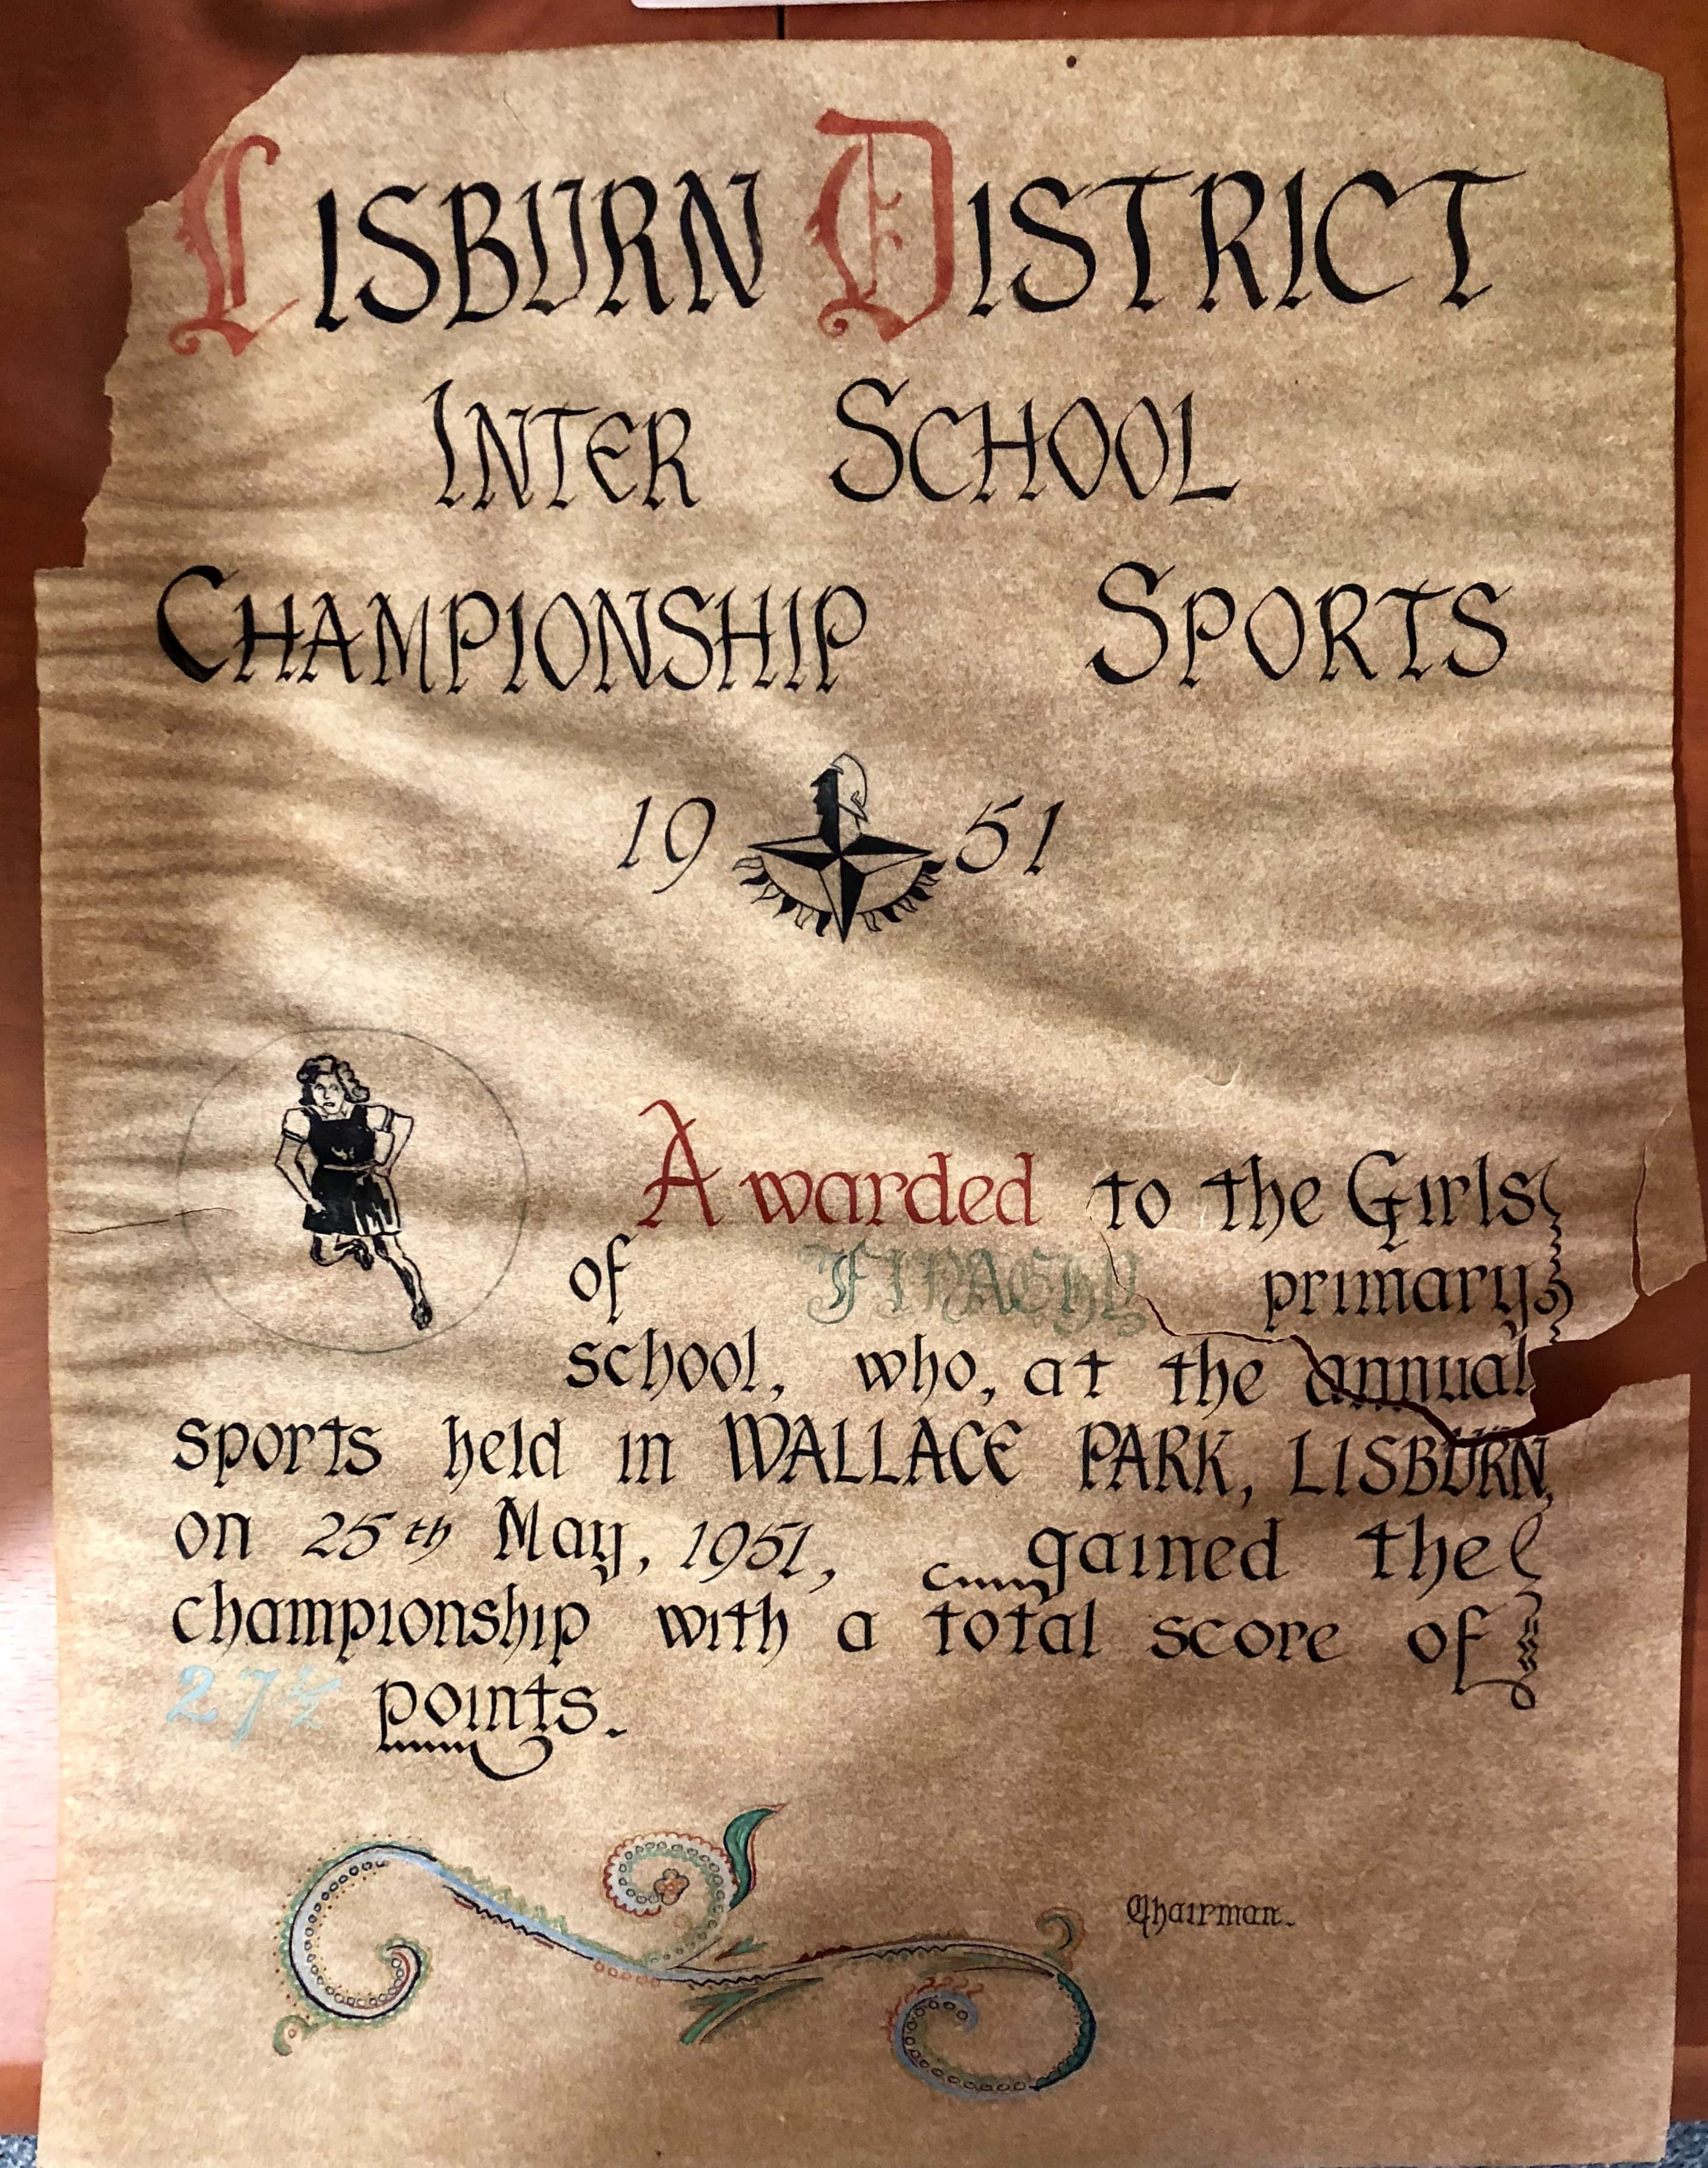 LISBURN DISTRICT
INTER SCHOOL
CHAMPIONSHIP SPORTS
19 51
Awarded to the Girls
of FINAGHY primary
school, who, at the annual
sports held in WALLACE PARK, LISBURN,
on 25th May, 1951, gained the
championship with a total score of
27½ points.
Chairman.